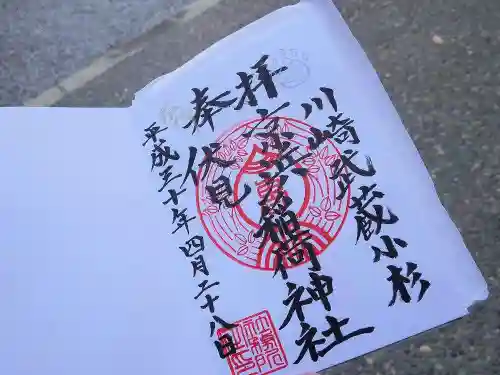 川崎武蔵小杉
奉拝
京濱伏見稲荷神社
平成三十年四月二十八日